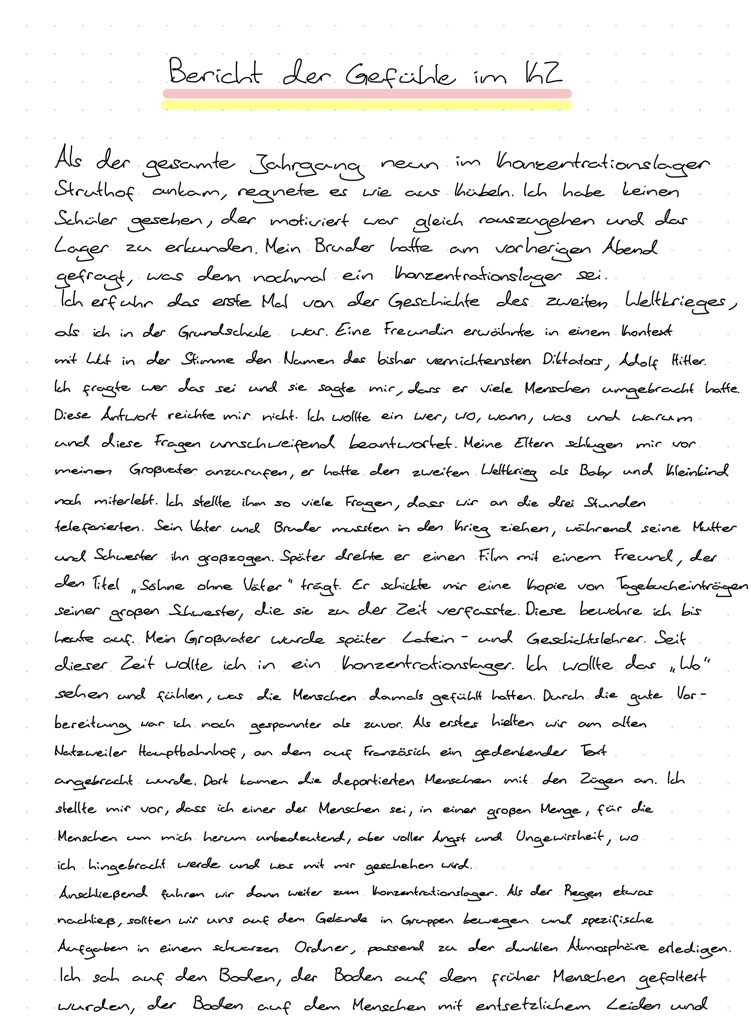 Bericht der Gefühle im KZ
Als der gesamte Jahrgang neun im Konzentrationslager
Struthof ankam, regnete es wie aus Kübeln. Ich habe keinen
Schüler gesehen, der motiviert war gleich rauszugehen und das
Lager zu erkunden. Mein Bruder hatte am vorherigen Abend
gefragt, was denn nochmal ein Konzentrationslager sei.
Ich erfuhr das erste Mal von der Geschichte des zweiten Weltkrieges,
als ich in der Grundschule war. Eine Freundin erwähnte in einem Kontext
mit Wut in der Stimme den Namen des bisher vernichtensten Diktators, Adolf Hitler.
Ich fragte wer das sei und sie sagte mir, dass er viele Menschen umgebracht hatte.
Diese Antwort reichte mir nicht. Ich wollte ein wer, wo, wann, was und warum
und diese Fragen umschweifend beantwortet. Meine Eltern schlugen mir vor
meinen Großvater anzurufen, er hatte den zweiten Weltkrieg als Baby und Kleinkind
noch miterlebt. Ich stellte ihm so viele Fragen, dass wir an die drei Stunden
telefonierten. Sein Vater und Bruder mussten in den Krieg ziehen, während seine Mutter
und Schwester ihn großzogen. Später drehte er einen Film mit einem Freund, der
den Titel „Söhne ohne Väter" trägt. Er schickte mir eine Kopie von Tagebucheinträgen
seiner großen Schwester, die sie zu der Zeit verfasste. Diese bewahre ich bis
heute auf. Mein Großvater wurde später Latein- und Geschichtslehrer. Seit
dieser Zeit wollte ich in ein Konzentrationslager. Ich wollte das „Wo"
sehen und fühlen, was die Menschen damals gefühlt hatten. Durch die gute Vor-
bereitung war ich noch gespannter als zuvor. Als erstes hielten wir am alten
Natzweiler Hauptbahnhof, an dem auf Französich ein gedenkender Text
angebracht wurde. Dort kamen die deportierten Menschen mit den Zügen an. Ich
stellte mir vor, dass ich einer der Menschen sei, in einer großen Menge, für die
Menschen um mich herum unbedeutend, aber voller Angst und Ungewissheit, wo
ich hingebracht werde und was mit mir geschehen wird.
Anschließend fuhren wir dann weiter zum Konzentrationslager. Als der Regen etwas
nachließ, sollten wir uns auf dem Gelände in Gruppen bewegen und spezifische
Aufgaben in einem schwarzen Ordner, passend zu der dunklen Atmosphäre erledigen.
Ich sah auf den Boden, der Boden auf dem früher Menschen gefoltert
wurden, der Boden auf dem Menschen mit entsetzlichem Leiden und